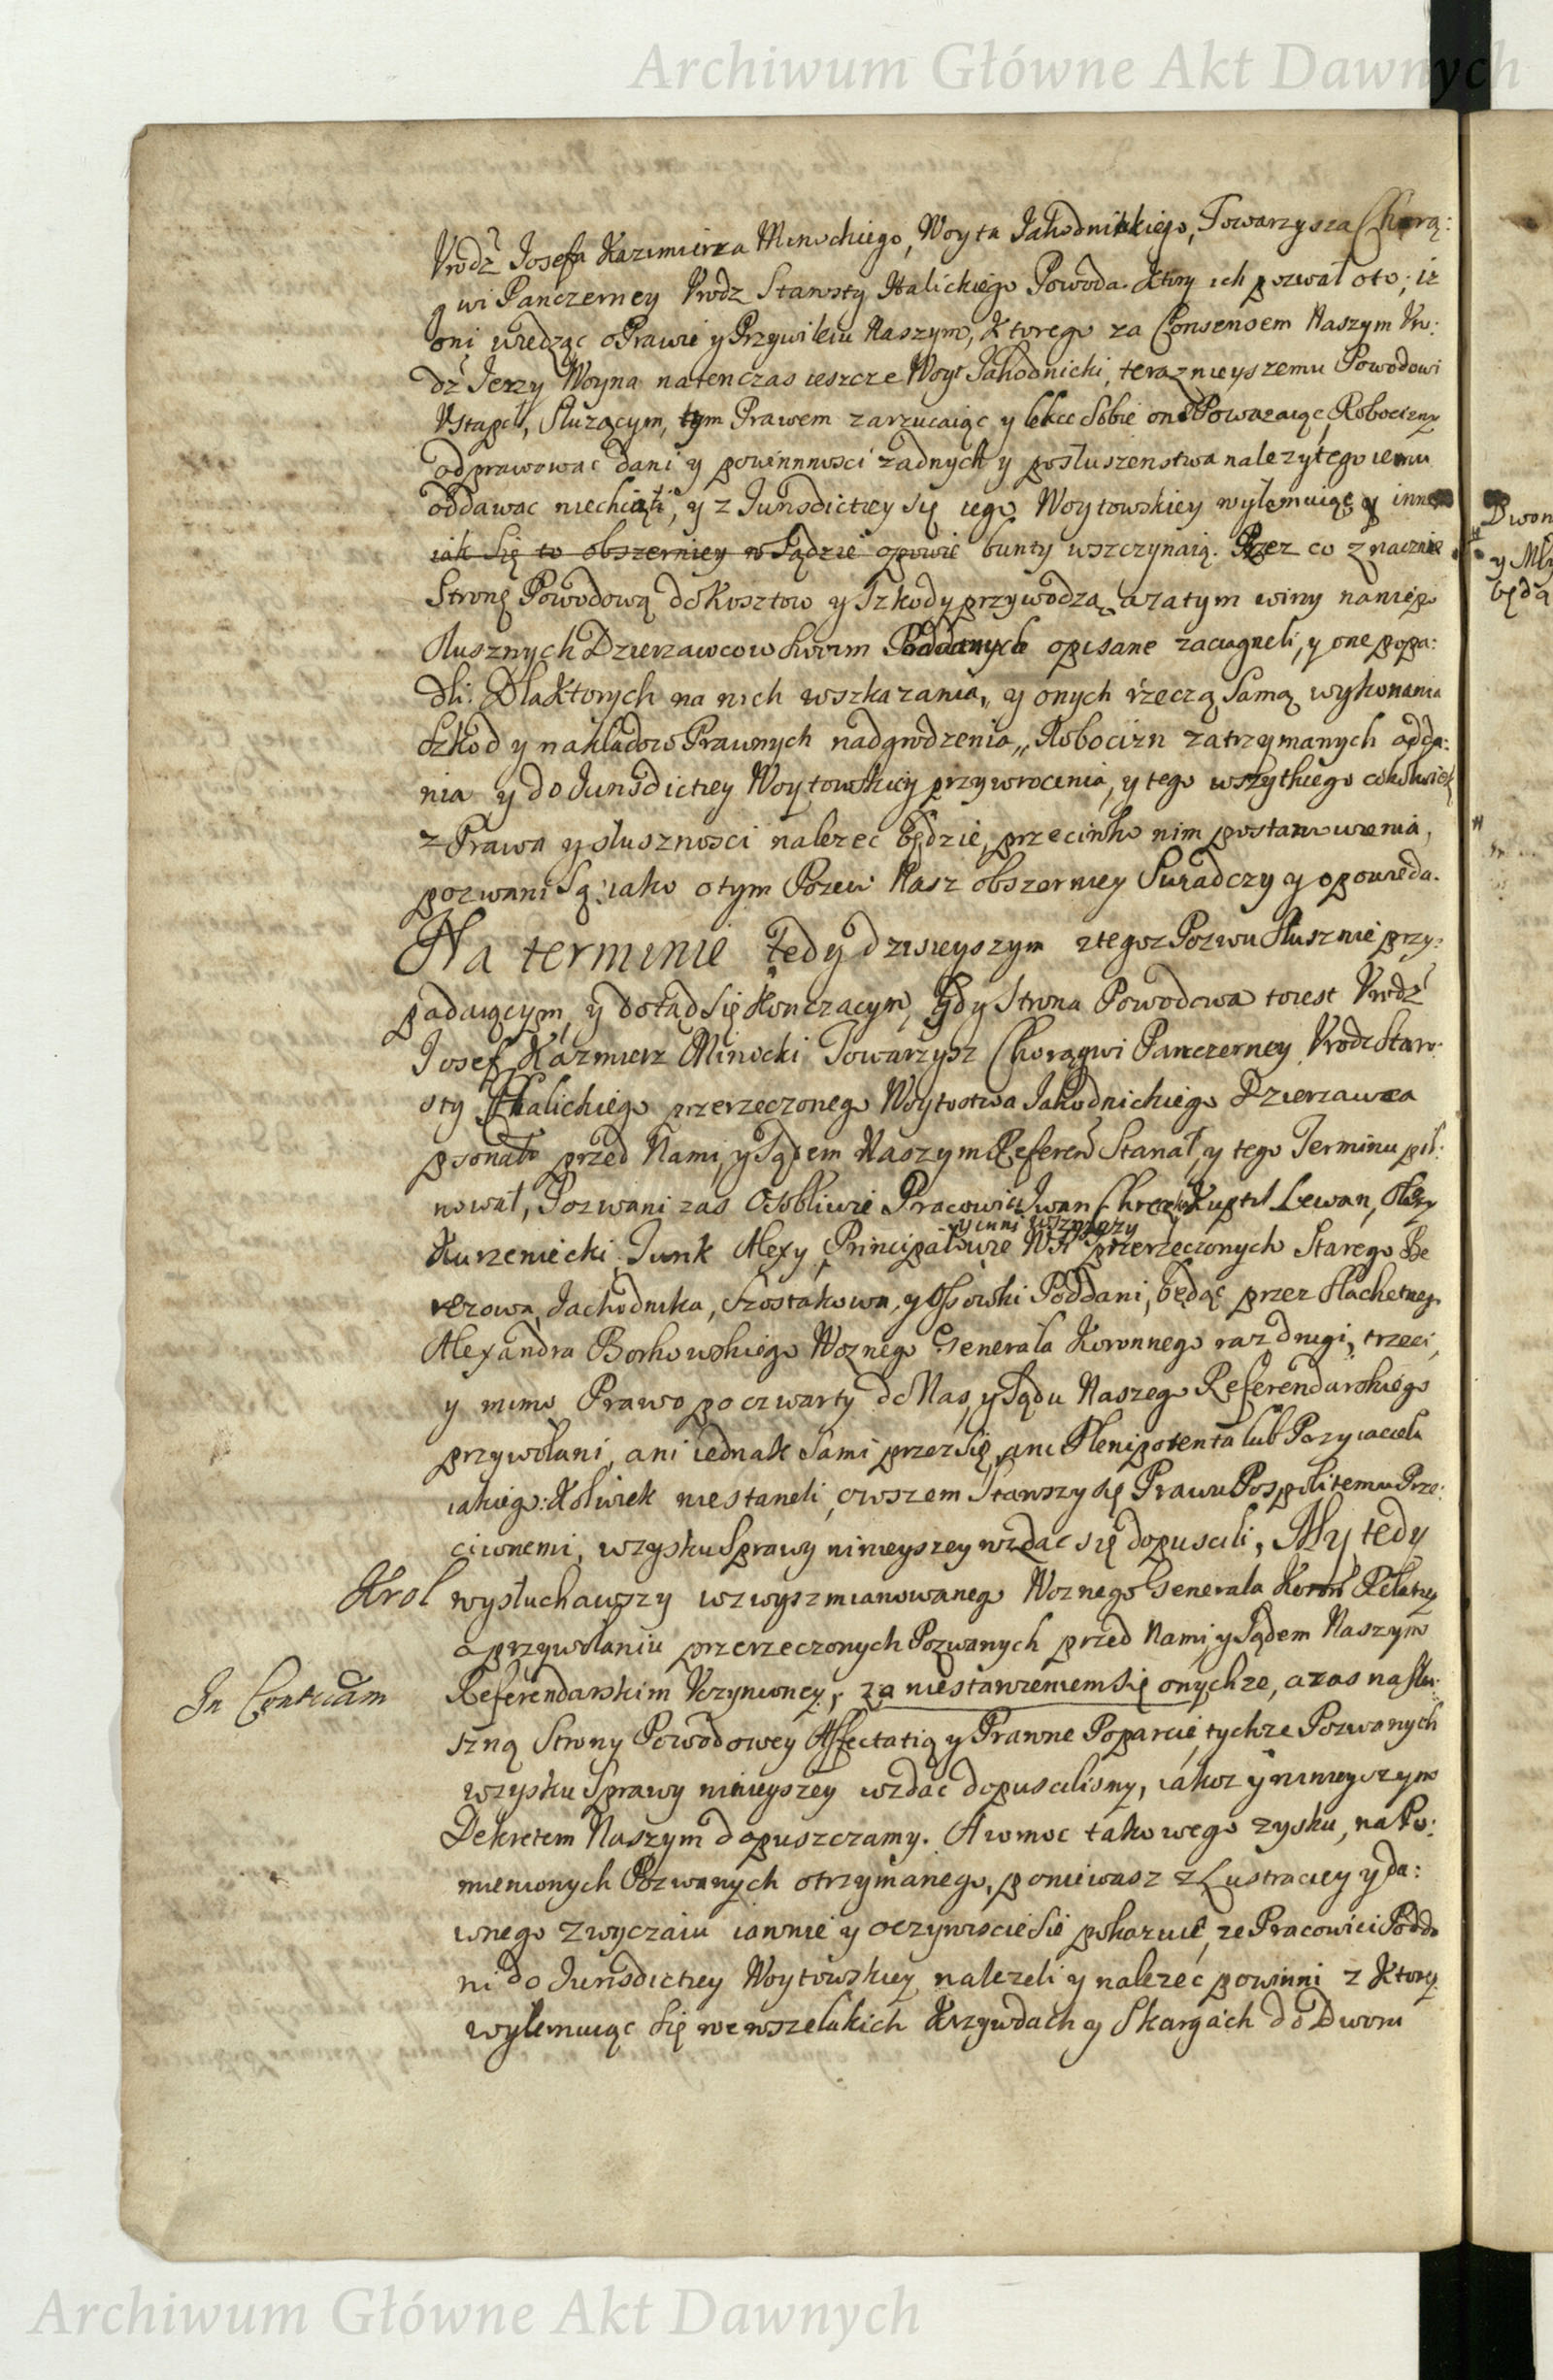 Archiwum Główne Akt Dawnych
Vrodz Josefa Kazimierza Minockiego, Woyta Jahodnickiego, Towarzysza Chorą:
gwi Panczerney Vrodz Starosty Halickiego Powoda. Ktory ich pozwał oto; iz
oni wiedząc o Prawie y Przywileiu Naszym, Ktorego za Consensem Naszym Vro:
dz Jerzy Woyna natenczas ieszcze Woyt Jahodnicki, teraznieyszemu Powodowi
Vstąpił, Służącym, tym Prawem zarzucaiąc y lekce Sobie one Poważaiąc, Robocizny
odprawować dani y powinnnosci żadnych y posłuszenstwa należytego iemu
oddawac niechcieli, y z Jurisdictiey się iego Woytowskiey wyłamuią y inne
iak się to obszerniey w Sądzie opowie bunty wszczynaią. Przez co znacznie
Stronę Powodową do Kosztow y Szkody przywodzą, a zatym winy na nie po
słusznych Dzierzawcow swoim Poddanych opisane zaciągneli, y one popa:
dli. Dla Ktorych na nich wskazania, y onych rzeczą Samą wykonania
Szkod y nakładow Prawnych nadgrodzenia, Robocizn zatrzymanych odda:
nia y do Jurisdictiey Woytowskiey przywrocenia, y tego wszytkiego cokolwiek
z Prawa y słuszności nalezec będzie, przeciwko nim postanowienia,
pozwani Są: iako o tym Pozew Nasz obszerniey Swiadczy y opowieda.
Na terminie tedy dzisieyszym z tegoz Pozwu słusznie przy:
padaiącym, y dotąd się Konczacym, gdy Strona Powodowa toiest Vrodz
Josef Kazmierz Minocki Towarzysz Chorągwi Panczerney Vrodz Staro:
sty Halickiego przerzeczonego Woytostwa Jahodnickiego Dzierzawca
psonalr przed Nami, y Sądem Naszym Referen Stanał, y tego Terminu pil:
nował, Pozwani zas Osobliwie Pracowici Iwan Kuptel Lewan,
y inni wszyscy
Kurzeniecki Junk Alexy Principałowie Wsi przerzeczonych Starego Be
rezowa, Jachodnika, Szostakowa, y Ossowki Poddani, będąc przez Slachetnego
Alexandra Borkowskiego Woznego Generała Koronnego raz drugi, trzeci,
y mimo Prawo poczwarty do Nas, y Sądu Naszego Referendarskiego
przywołani, ani iednak Sami przez się, ani Plenipotenta lub Przyiaciela
iakiego: Kolwiek nie staneli, owszem Stawszy się Prawu Pospolitemu Prze:
ciwnemi, w zysku Sprawy ninieyszey wzdac się dopuscili, My tedy
Krol wysłuchawszy wzwyszmianowanego Woznego Generala Koron Relatiey
o przywołaniu przerzeczonych Pozwanych przed Nami, y Sądem Naszym
In Contciam Referendarskim Vczynioney, za niestawieniem się onychze, a zas na słu:
szną Strony Powodowey Affectatią y Prawne Poparcie, tychze Pozwanych
w zysku Sprawy ninieyszey wzdac dopuscilismy, iakoz y ninieyszym
Dekretem Naszym dopuszczamy. A w moc takowego zysku, na Po:
mienionych Pozwanych otrzymanego, poniewasz z Lustraciey y da:
wnego zwyczaiu iawnie y oczywiscie Sie pokazuie, ze Pracowici Podda
ni do Jurisdictiey Woytowskiey nalezeli y nalezec powinni z Ktorey
wylamuiąc Się we wszelakich Krzywdach y Skargach do Dworu
Archiwum Główne Akt Dawnych